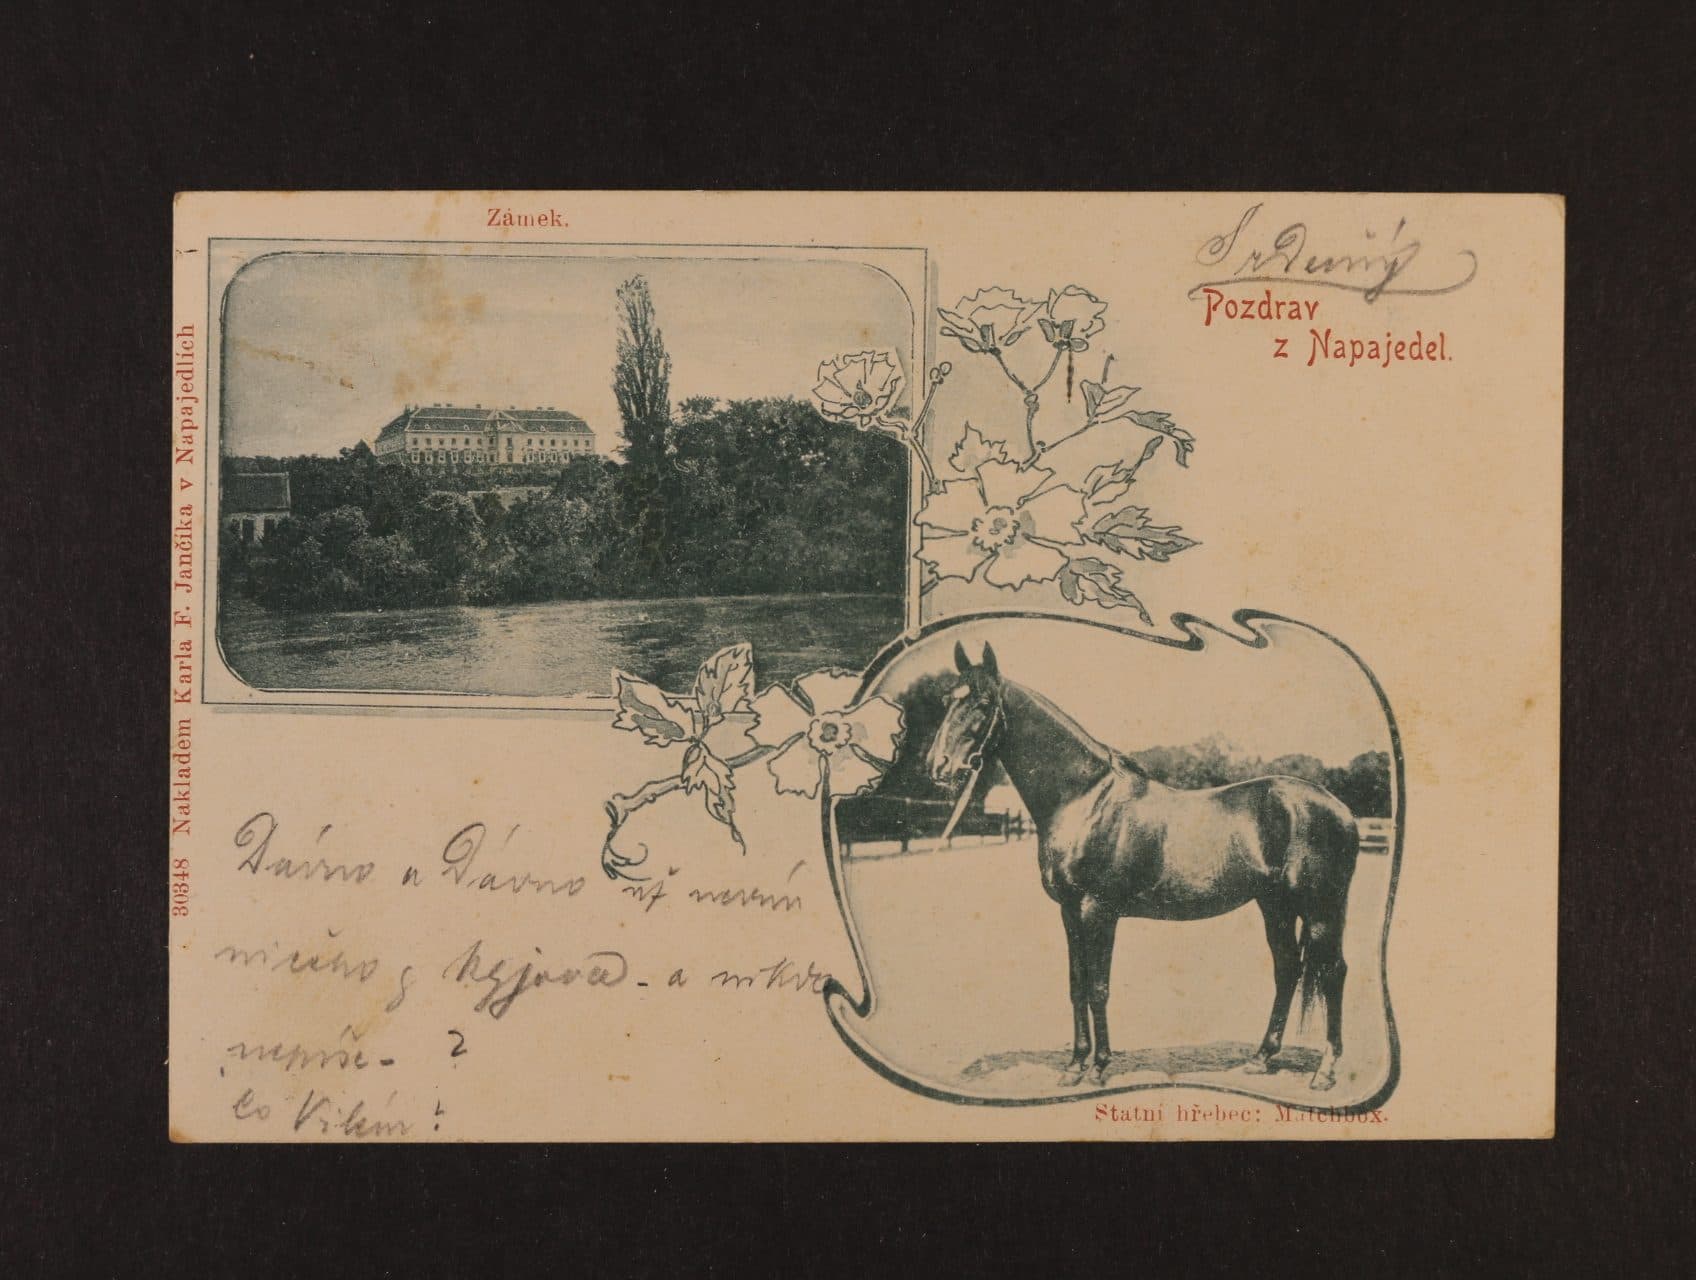 Zámek.
Srdečný
Pozdrav
z Napajedel.
30348 Nakladem Karla F. Jančíka v Napajedlích
Dávno a Dávno už nevím
ničeho z Kyjova - a nikdo
nepíše - ?
Co Vilém!
Statní hřebec: Matchbox.